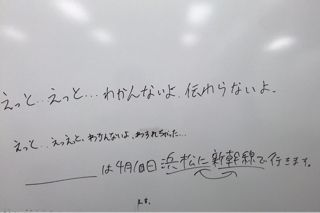 えっと‥えっと…わかんないよ、伝わらないよ。
えっと‥えっえっと、わかんないよ、わすれちゃった…
＿＿＿＿は4月10日浜松に新幹線で行きます。